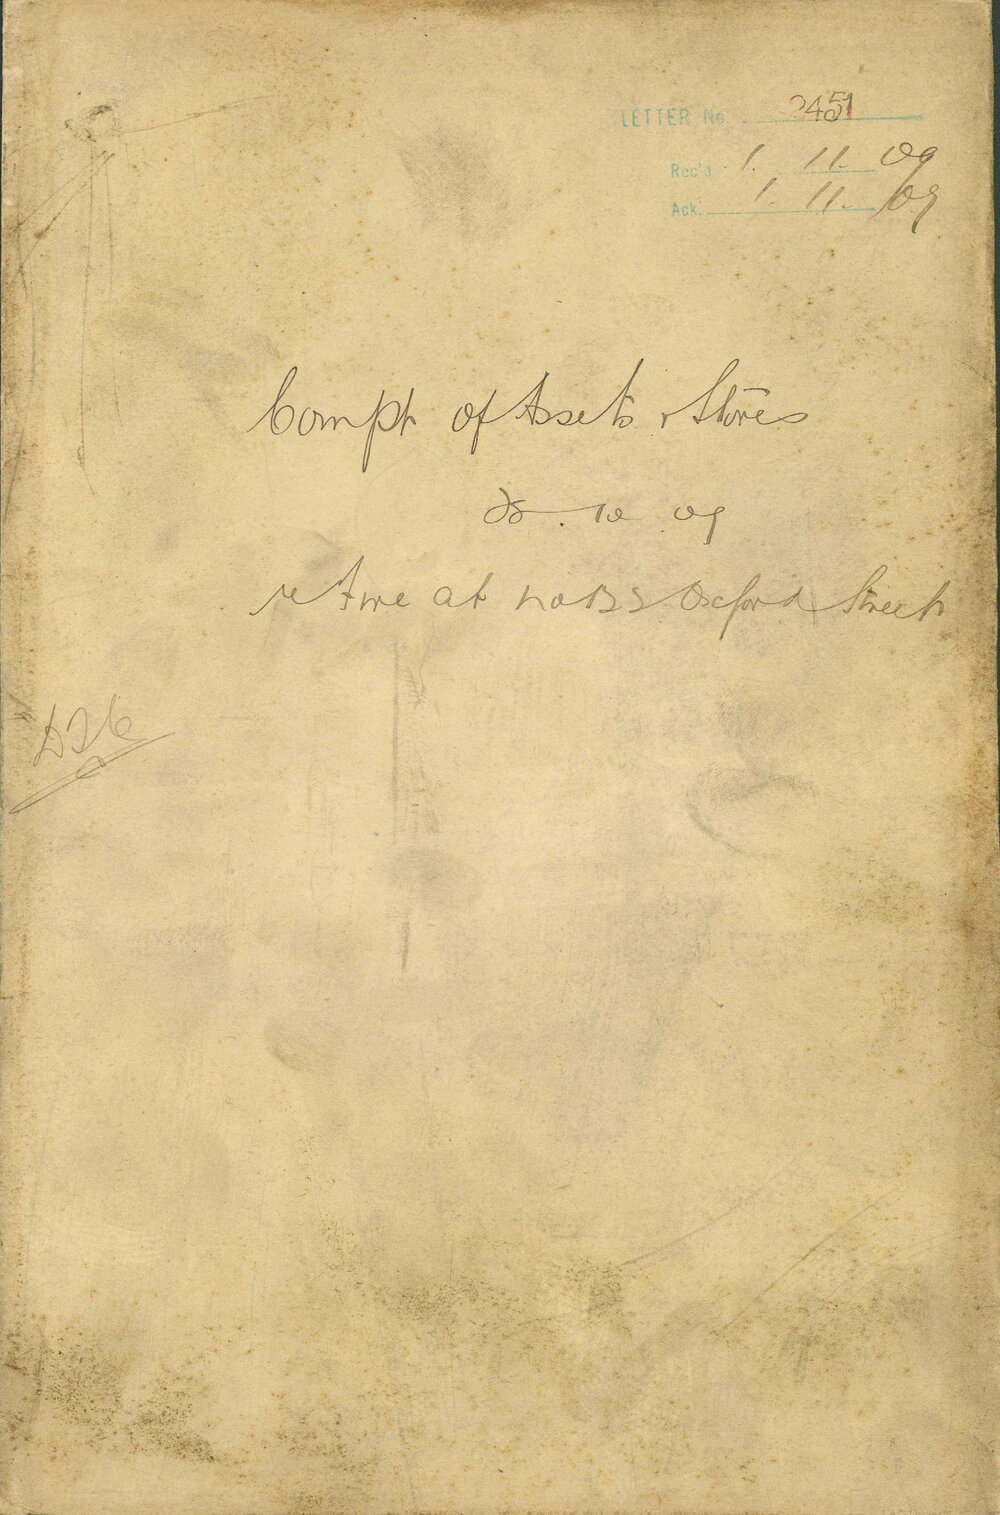 LETTER No. 2451
Rec'd 1. 11. 09
Ack. 1. 11. 09
Compt of Assets & Stores
. 10 09
re Fire at No Oxford Street